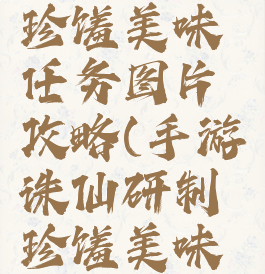 珍馐美味
任务图片
攻略(手游
珠仙研制
珍馐美味